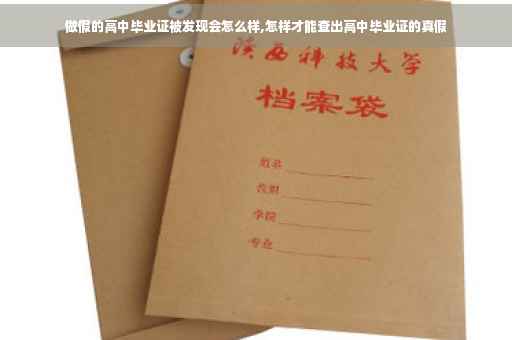 做假的高中毕业证被发现会怎么样,怎样才能查出高中毕业证的真假
陕西科技大学
档案袋
姓名
学院
专业